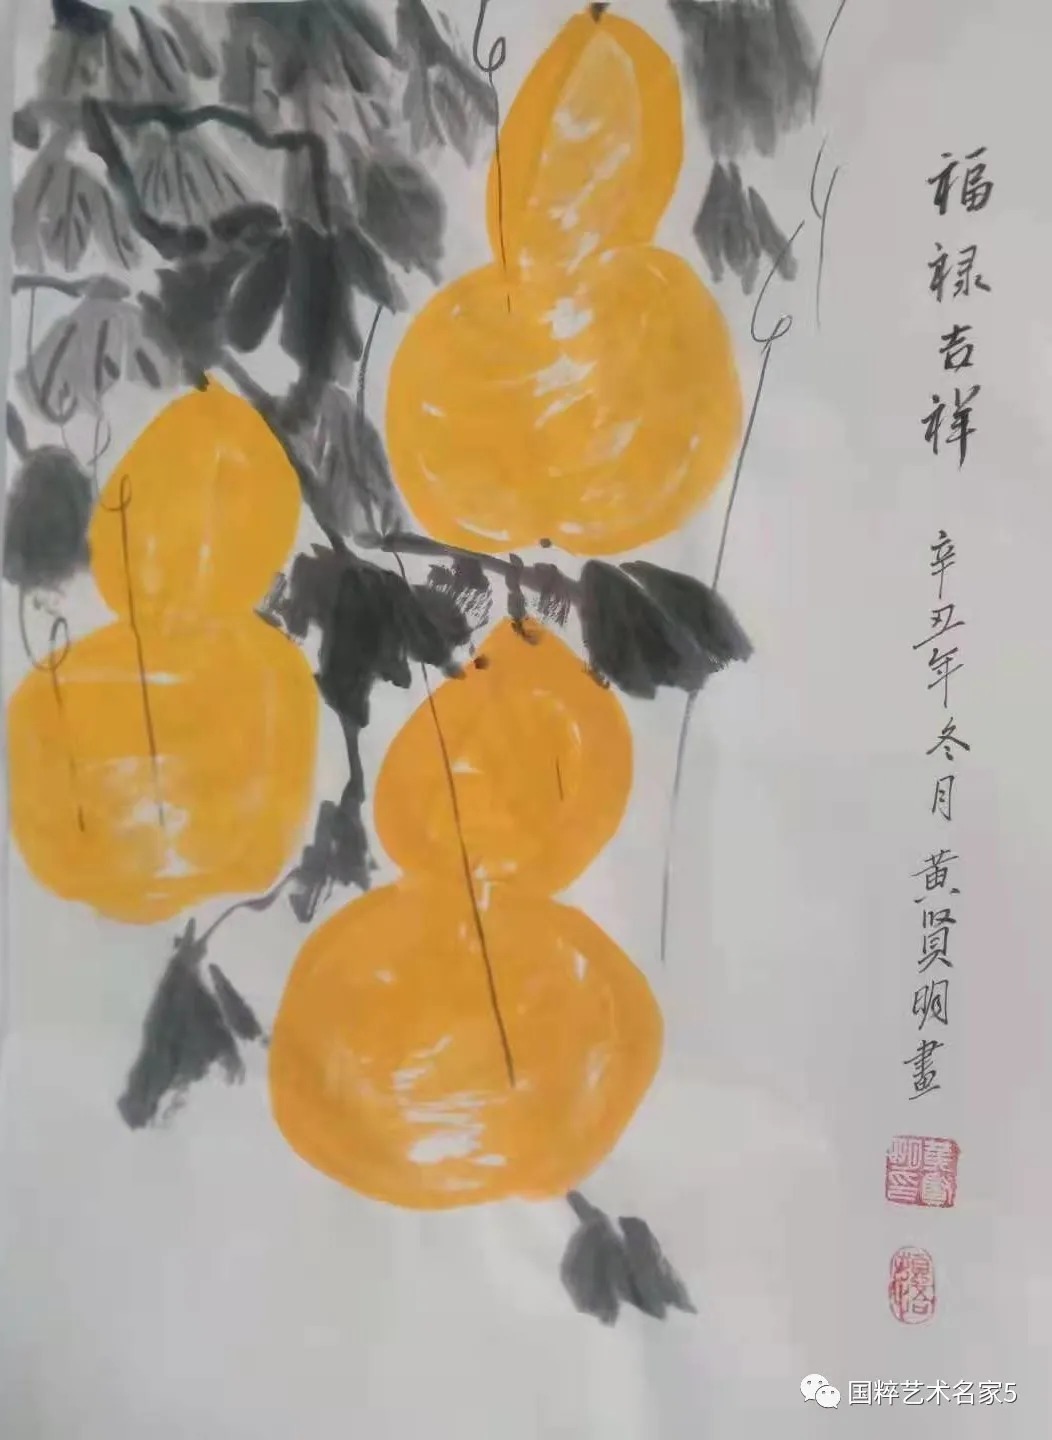 福禄吉祥 辛丑年冬月 黄贤明畫
国粹艺术名家5